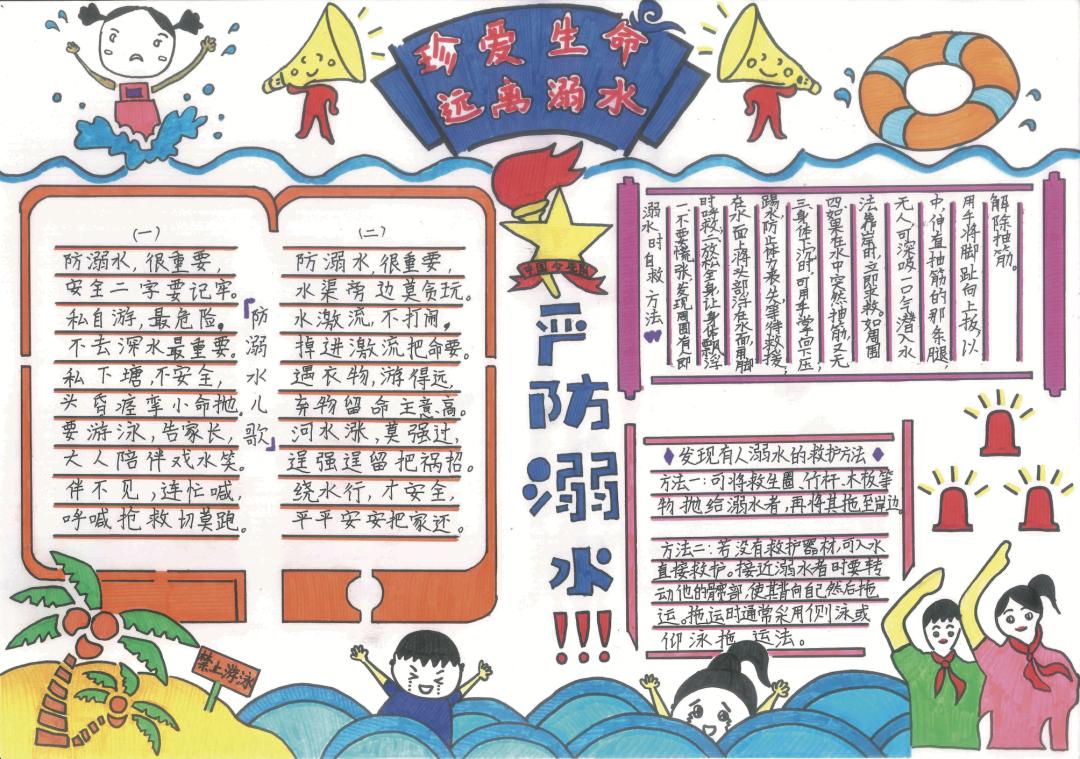 珍爱生命
远离溺水
(一)
防溺水,很重要,
安全二字要记牢。
私自游,最危险,
不去深水最重要。
私下塘,不安全,
头昏痉挛小命抛。
要游泳,告家长,
大人陪伴戏水笑。
伴不见,连忙喊,
呼喊抢救切莫跑。
『防溺水儿歌』
(二)
防溺水,很重要,
水渠旁边莫贪玩。
水激流,不打闹,
掉进激流把命要。
遇衣物,游得远,
弃物留命主意高。
河水涨,莫强过,
逞强逞留把祸招。
绕水行,才安全,
平平安安把家还。
中国少年队
严防溺水!!!
溺水时自救方法
一不要慌张发现周围有人即
时呼救,二放松全身,让身体飘浮
在水面上,将头部浮在水面,用脚
踢水,防止体力丧失,等待救援,
三,身体下沉时,可用手掌向下压,
四,如果在水中突然抽筋,又无
法靠岸时,立即求救。如周围
无人,可深吸一口气潜入水
中,伸直抽筋的那条腿,
用手将脚趾向上拔,以
解除抽筋。
发现有人溺水的救护方法
方法一:可将救生圈、竹杆、木板等
物抛给溺水者,再将其拖至岸边。
方法二:若没有救护器材,可入水
直接救护。接近溺水者时要转
动他的髋部,使其背向自己然后拖
运。拖运时通常采用侧泳或
仰泳拖运法。
禁止游泳